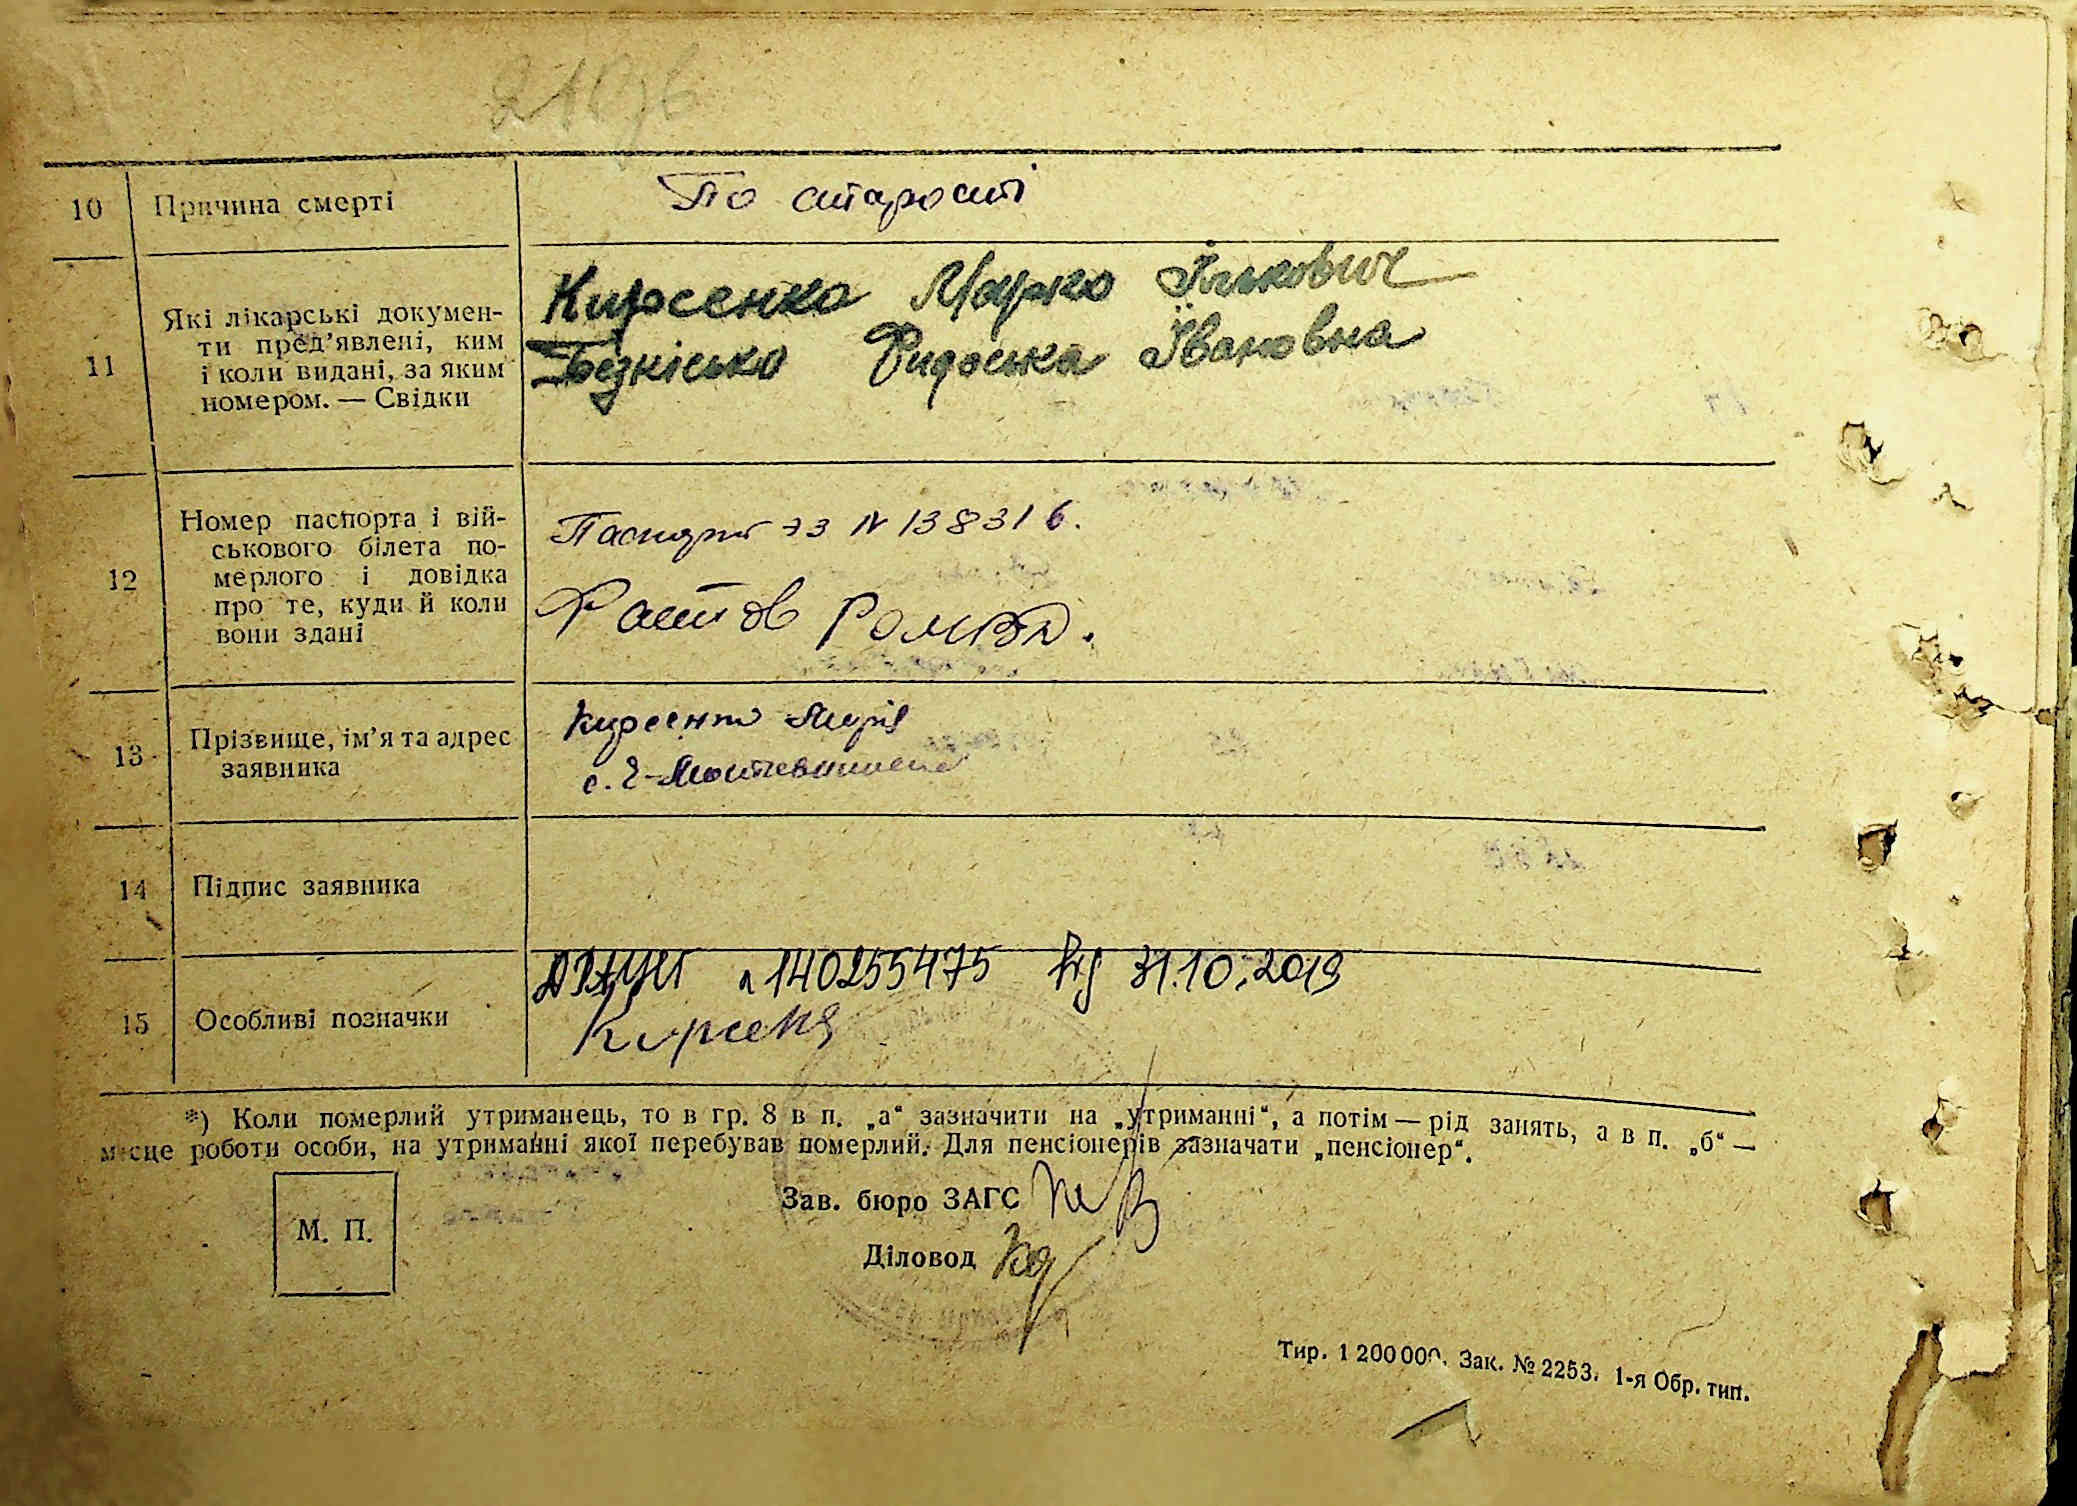 10 Причина смерті По старості
11 Які лікарські докумен-
ти пред’явлені, ким
і коли видані, за яким
номером. — Свідки
Кирсенко Марко Ількович
Іванівна
12 Номер паспорта і вій-
ськового білета по-
мерлого і довідка
про те, куди й коли
вони здані
Паспорт № 138316.
13 Прізвище, ім’я та адрес
заявника
Кирсенко Марія
14 Підпис заявника
15 Особливі позначки
№ 140255475 від 31.10.2019
*) Коли померлий утриманець, то в гр. 8 в п. „а“ зазначити на „утриманні“, а потім — рід занять, а в п. „б“ —
місце роботи особи, на утриманні якої перебував померлий. Для пенсіонерів зазначати „пенсіонер“.
Зав. бюро ЗАГС
М. П.
Діловод
Тир. 1 200 000. Зак. № 2253. 1-я Обр. тип.